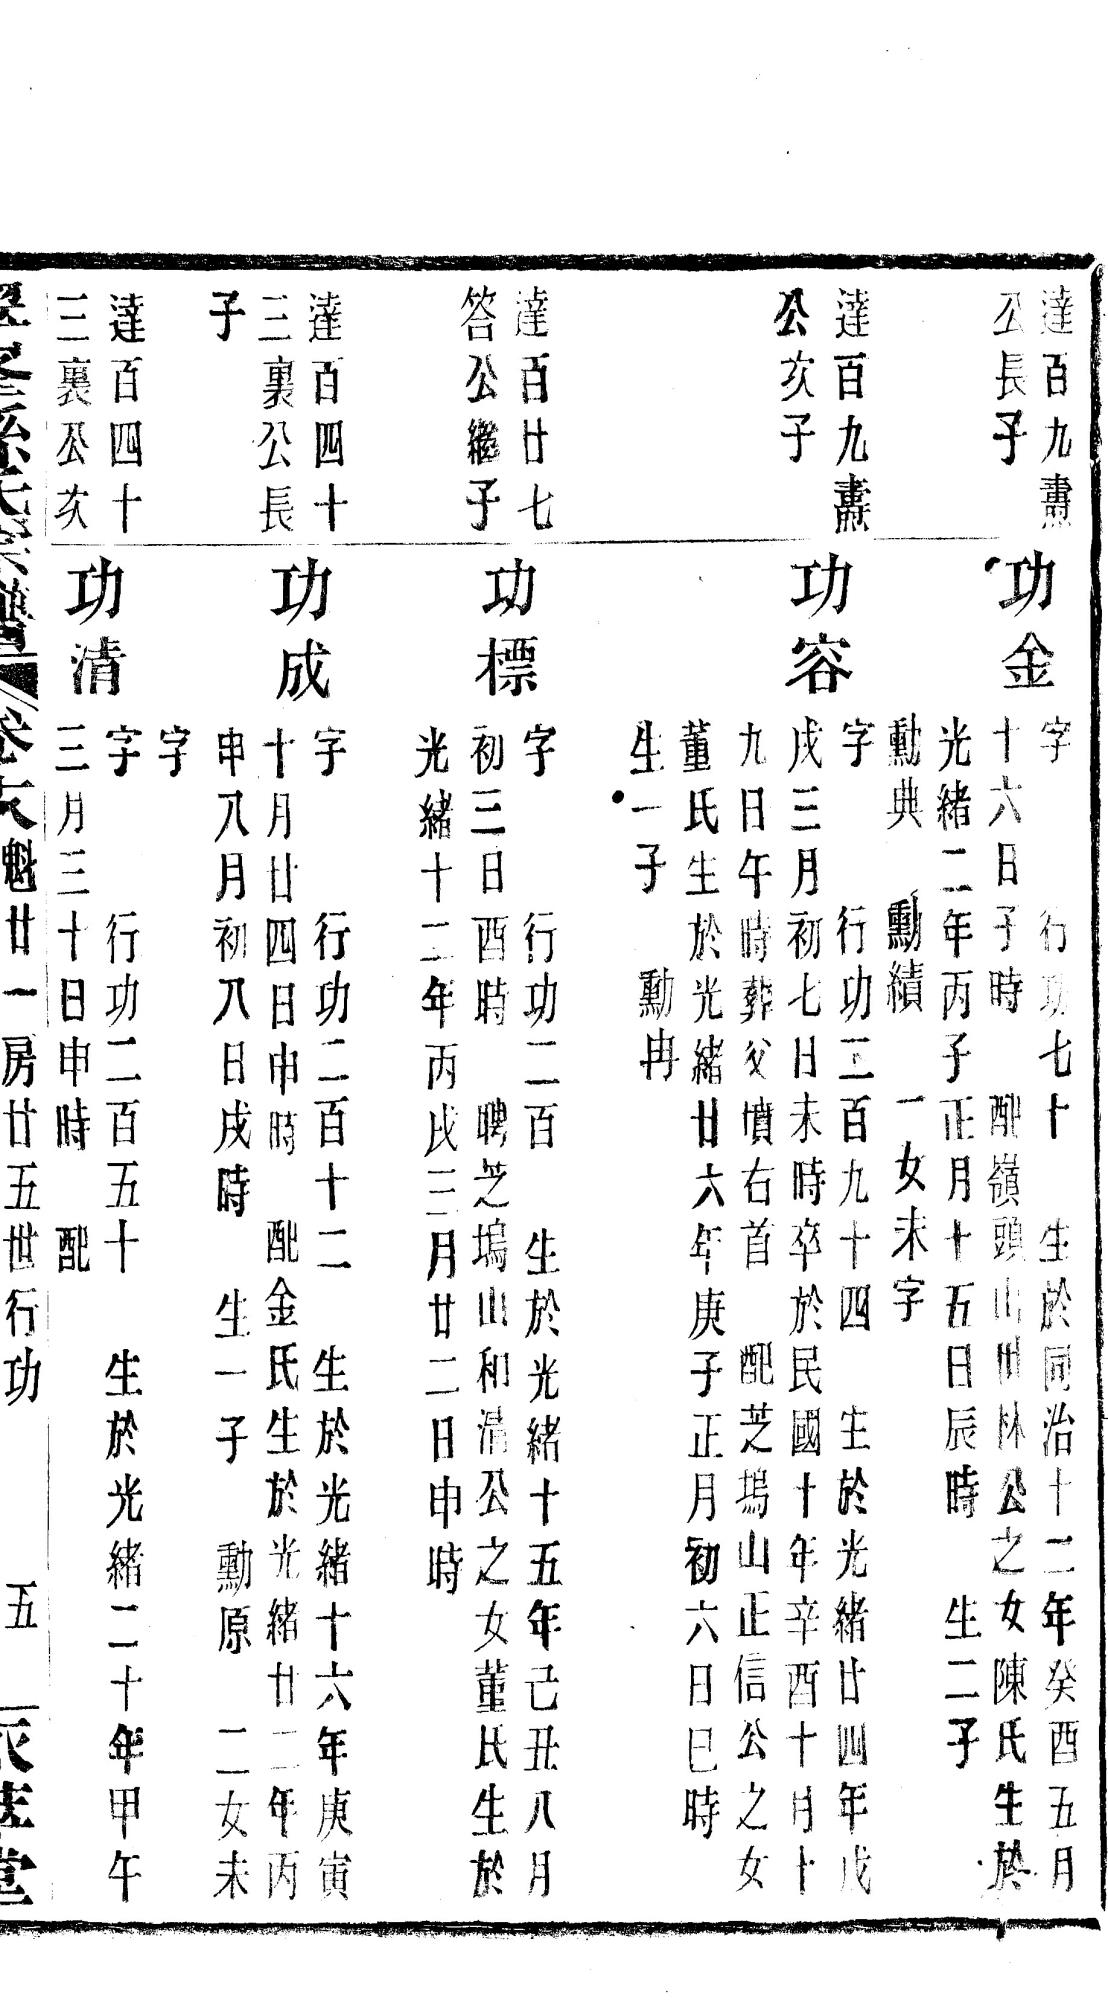 達百九燾
公長子
功金
字 行功七十 生於同治十二年癸酉五月
十六日子時 配嶺頭山世林公之女陳氏生於
光緒二年丙子正月十五日辰時 生二子
勳典 勳績 一女未字
達百九燾
公次子
功容
字 行功二百九十四 生於光緒廿四年戊
戌三月初七日未時卒於民國十年辛酉十月十
九日午時葬父墳右首 配芝塢山正信公之女
董氏生於光緒廿六年庚子正月初六日巳時
生一子 勳冉
達百廿七
答公繼子
功標
字 行功二百 生於光緒十五年己丑八月
初三日酉時 聘芝塢山和清公之女董氏生於
光緒十二年丙戌三月廿二日申時
達百四十
三裏公長
子
功成
字 行功二百十二 生於光緒十六年庚寅
十月廿四日申時 配金氏生於光緒廿二年丙
申八月初八日戌時 生一子 勳原 二女未
字
達百四十
三裏公次
功清
字 行功二百五十 生於光緒二十年甲午
三月三十日申時 配
孫氏宗譜 卷 魁廿一房廿五世行功 五 堂